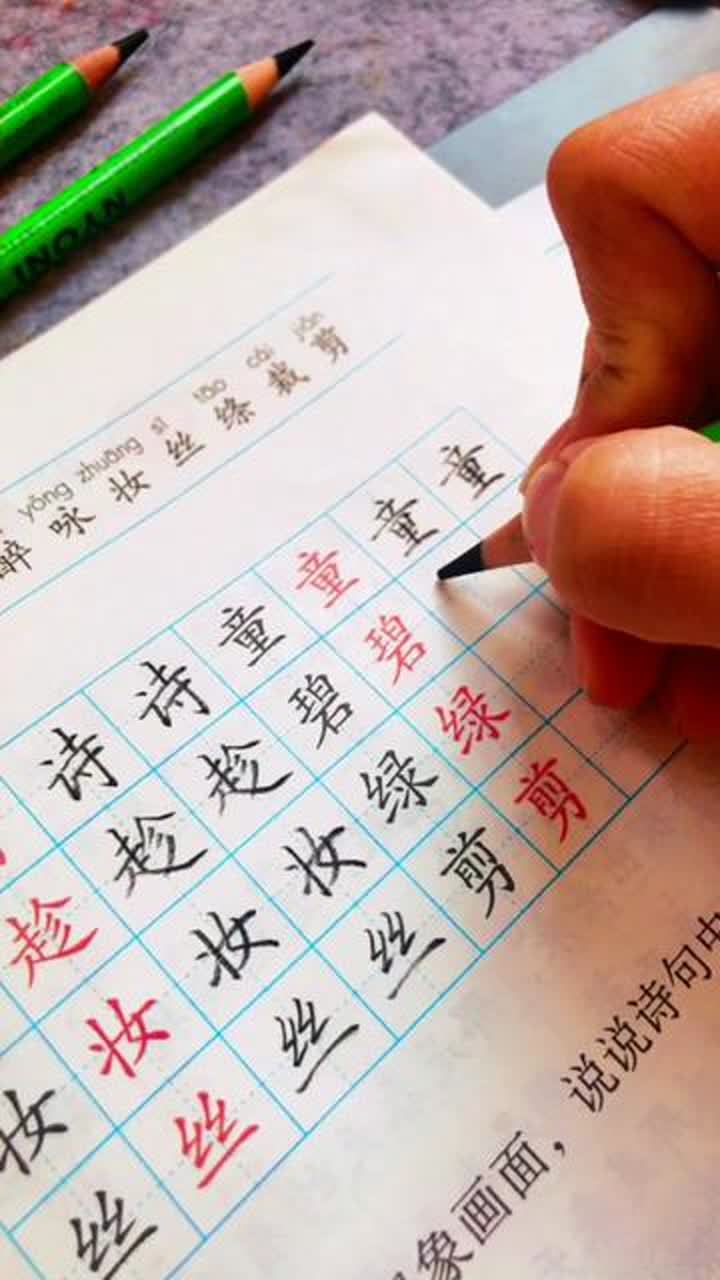 NYONI
yǒng zhuāng sī tāo cái jiǎn
醉 咏 妆 丝 绦 裁 剪
诗 诗 童 童 童 童
趁 趁 趁 碧 碧
妆 妆 妆 妆 绿 绿
丝 丝 丝 丝 剪 剪
象画面，说说诗句中